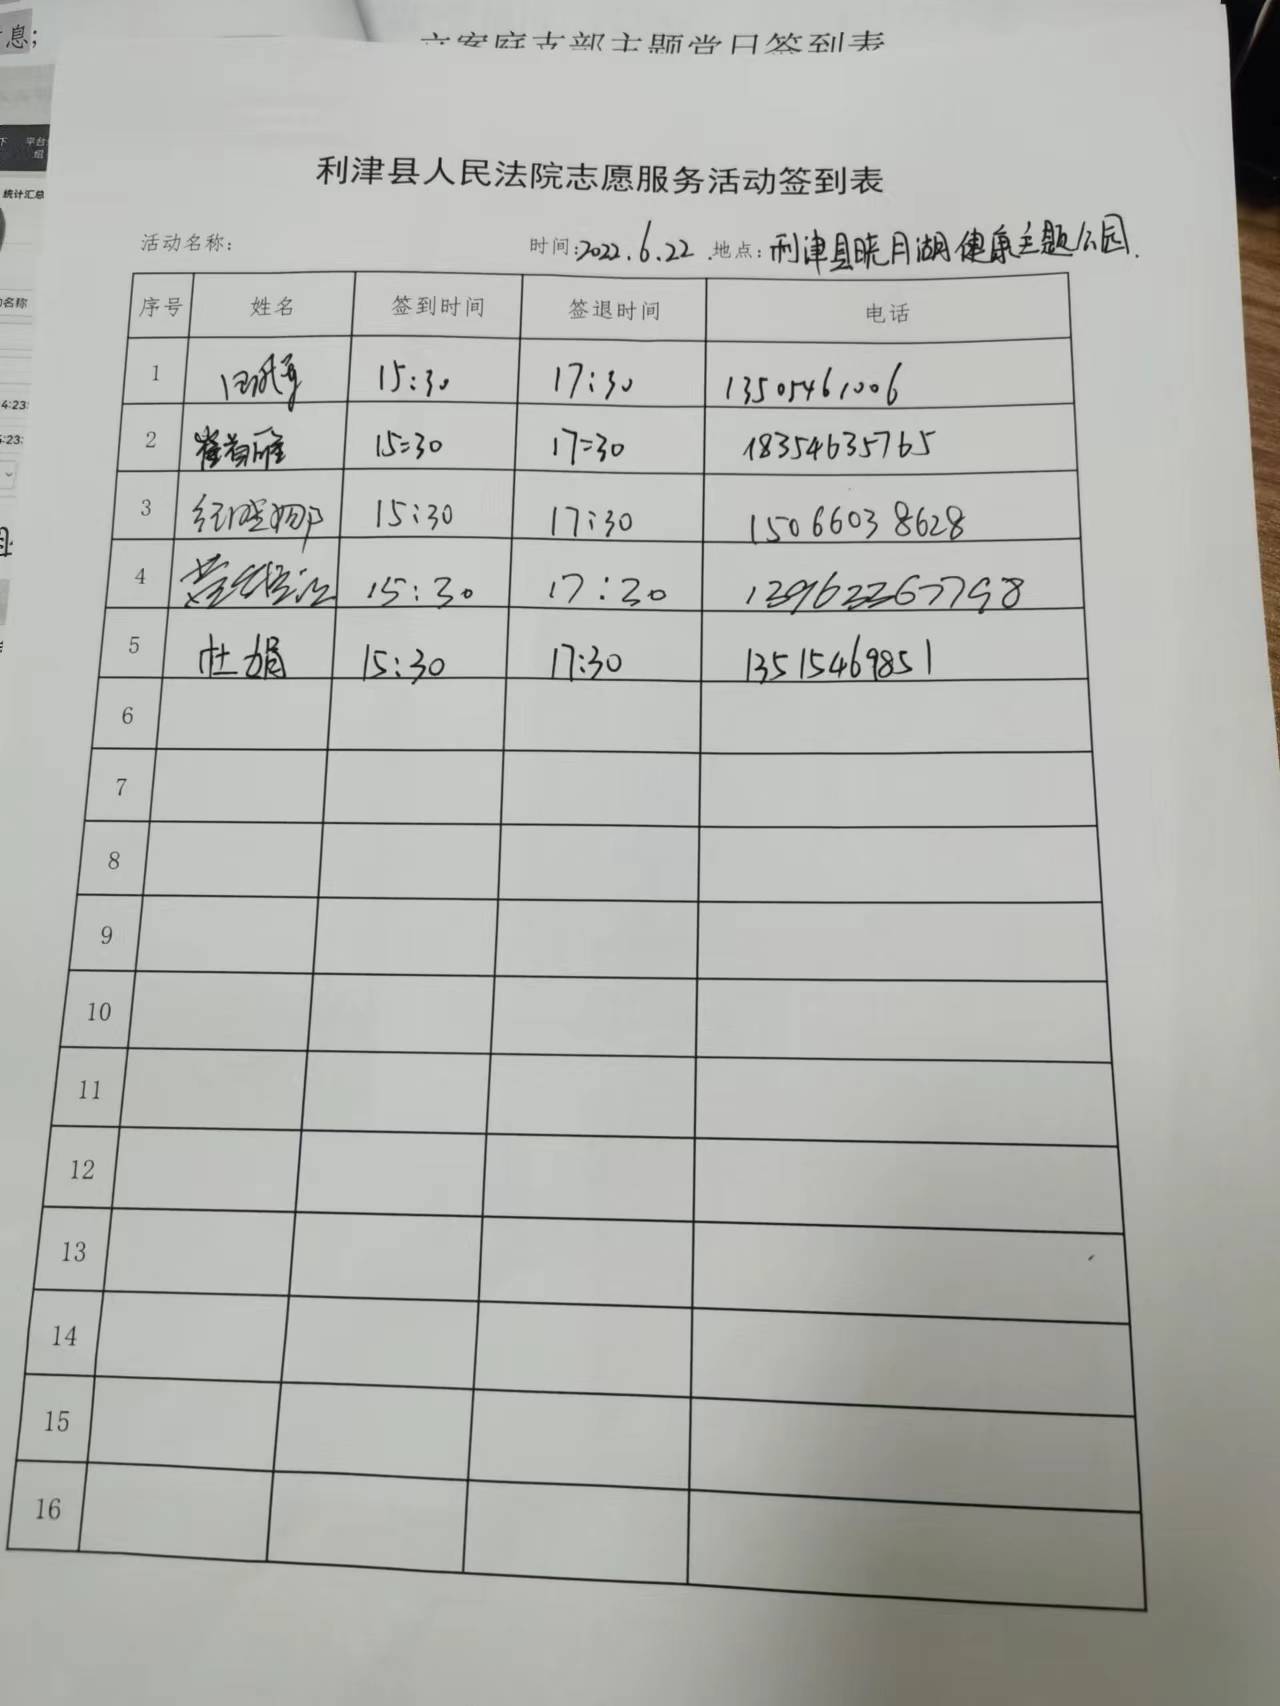 息；
立案庭支部主题党日签到表
平台
组
统计汇总
名称
4:23:
5:23:
利津县人民法院志愿服务活动签到表
活动名称： 时间：2022.6.22. 地点：利津县晓月湖健康主题公园.
序号 姓名 签到时间 签退时间 电话
1 15:30 17:30 13505461006
2 15:30 17:30 18354635765
3 15:30 17:30 15066038628
4 15:30 17:30
5 杜娟 15:30 17:30 13515469851
6
7
8
9
10
11
12
13
14
15
16